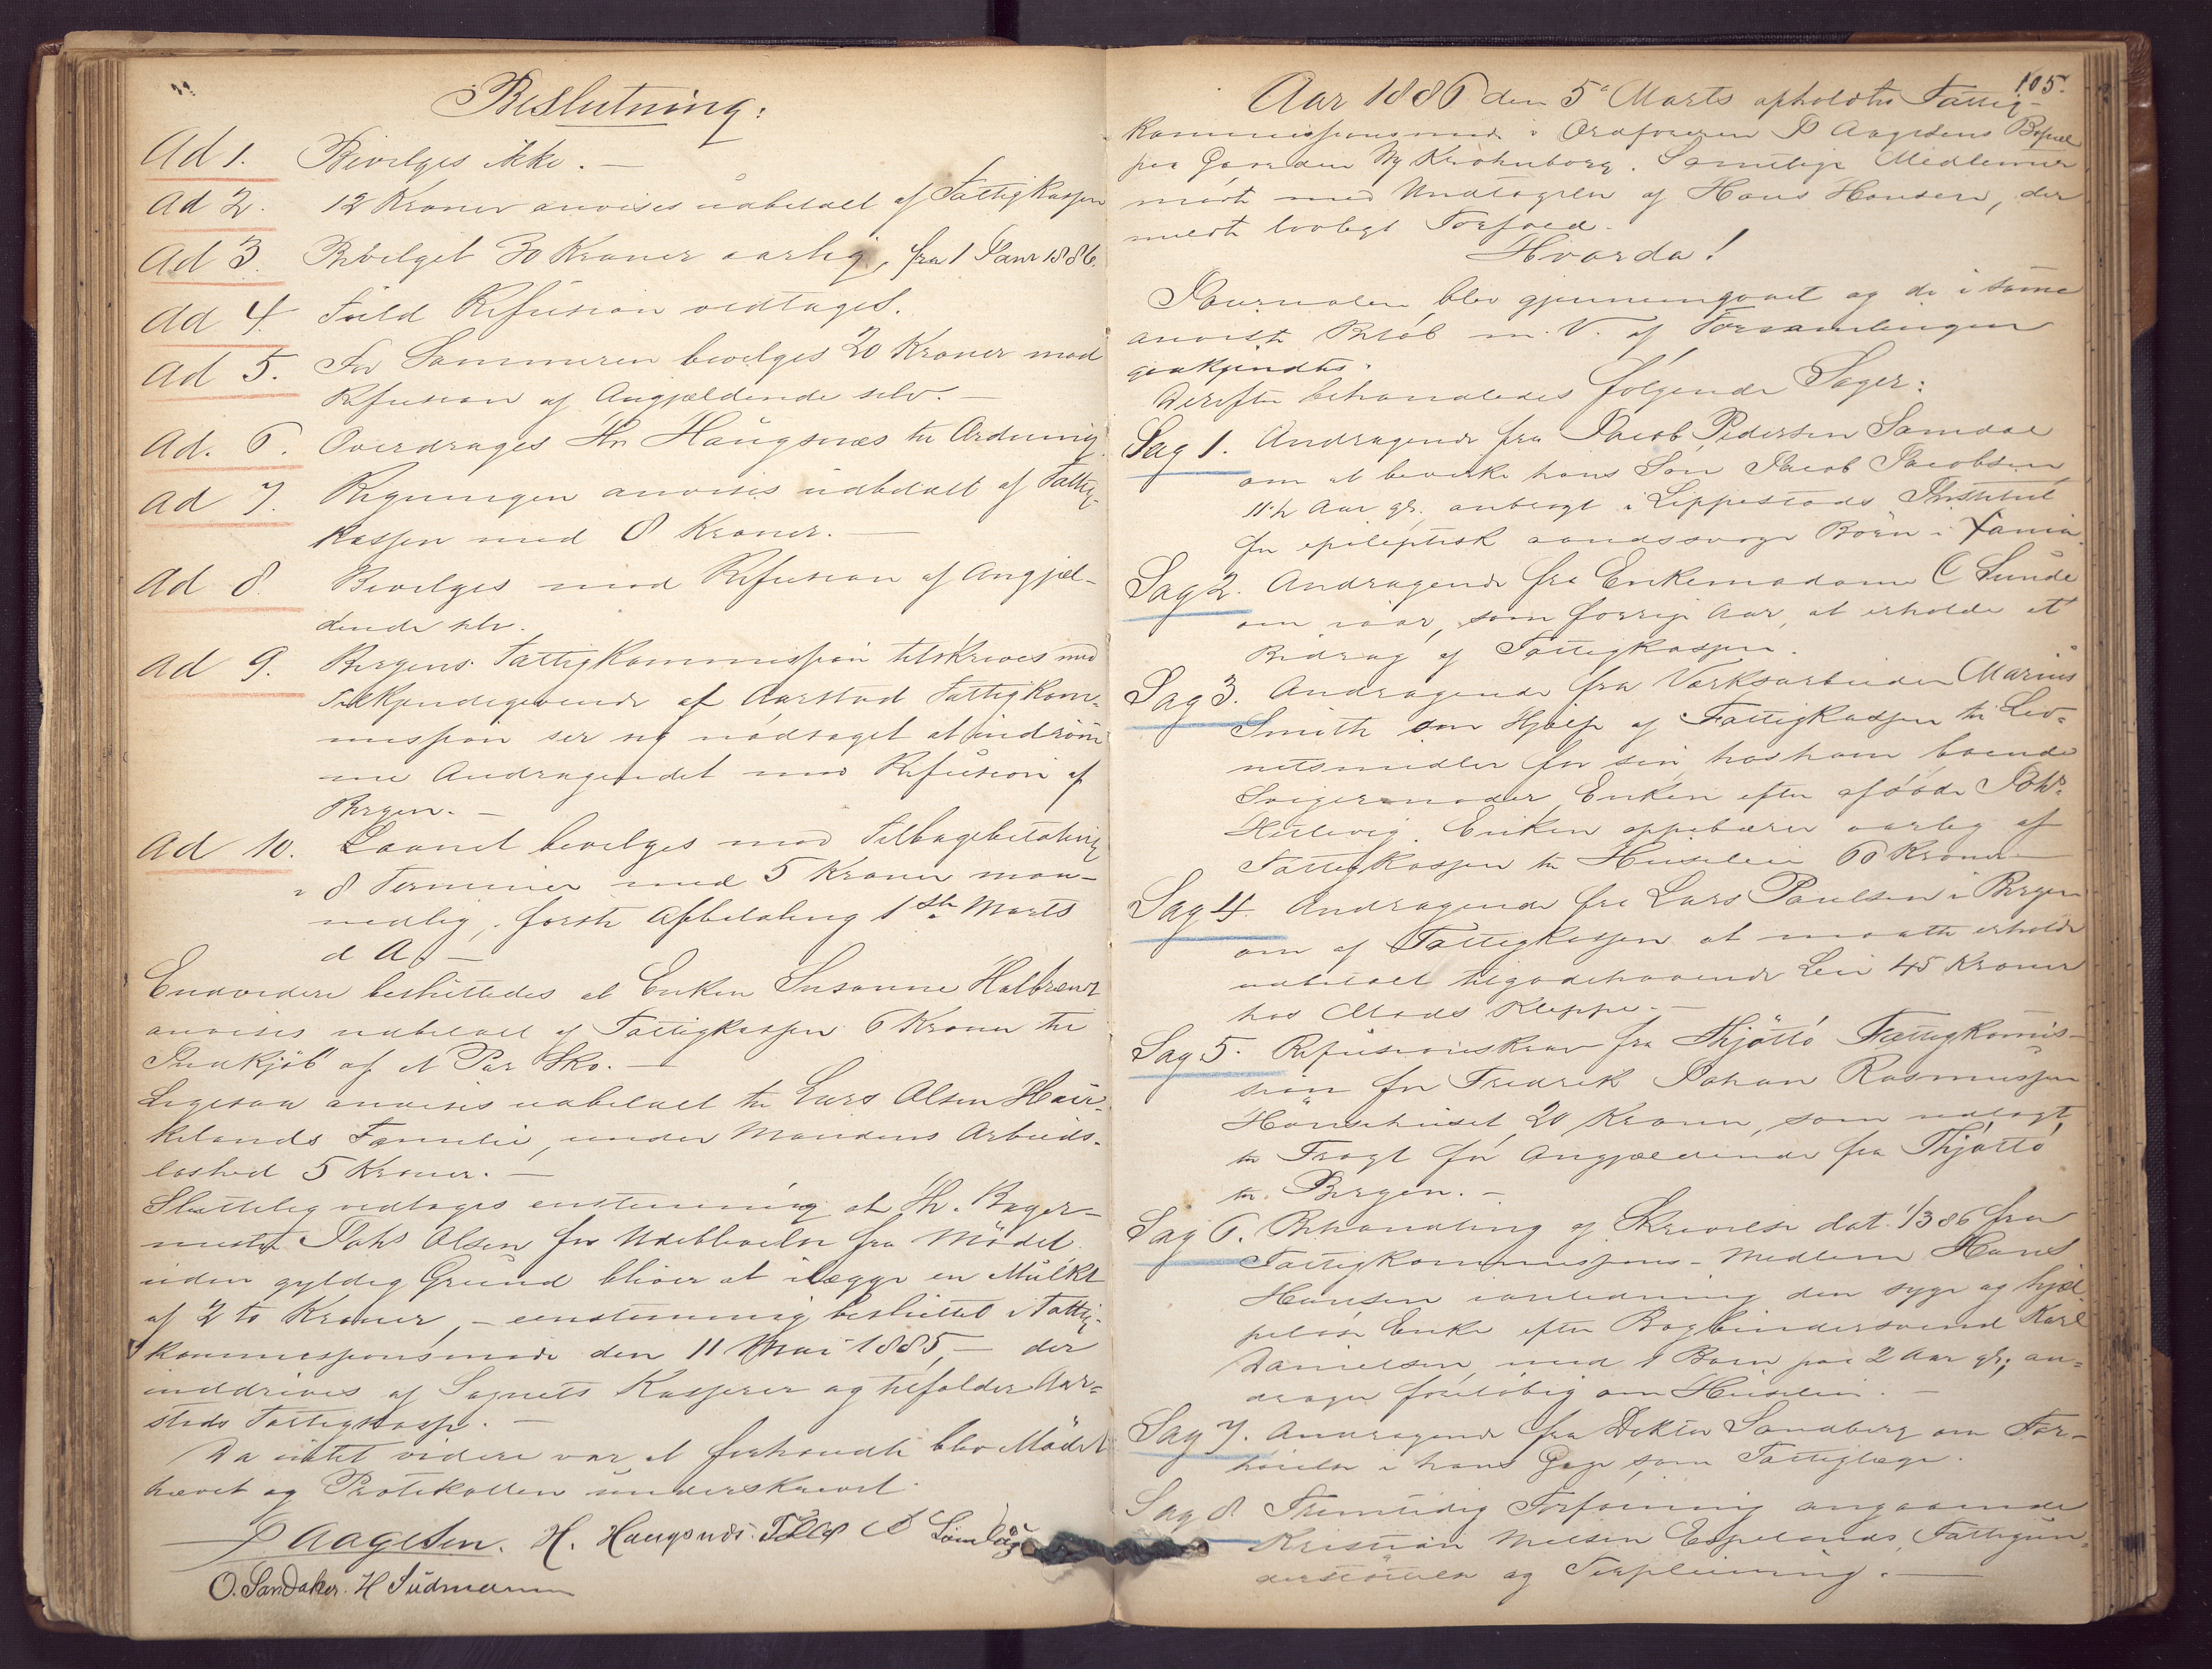 Beslutning:
Ad 1. Bevilges ikke. —
Ad 2. 12 Kroner anvises udbetalt af Fattigkassen
Ad 3. Bevilget 30 Kroner aarlig, fra 1 Janr 1886.
Ad 4. Fuld Refusion vedtages.
Ad 5. For Sommeren bevilges 20 Kroner mod
Refusion af Angjældende selv. —
Ad. 6. Overdrages Hr Haugsnæs til Ordning.
Ad 7. Regningen anvises udbetalt af Fattig-
kassen med 8 Kroner. —
Ad 8. Bevilges mod Refusion af Angjæl-
dende selv.
Ad 9. Bergens Fattigkommission tilskrives med
Tilkjendegivende af Aarstad Fattigkom-
mission ser sig nødsaget at indrøm-
me Andragendet mod Refusion af
Bergen. —
Ad 10. Laanet bevilges mod Tilbagebetaling
i 8 Terminer med 5 Kroner maa-
nedlig, første Afbetaling 1ste Marts
d A. —
Endvidere besluttedes at Enken Susanne Halbrend
anvises udbetalt af Fattigkassen 6 Kroner til
Indkjøb af et Par Sko. —
Ligesaa anvises udbetalt til Lars Olsen Hau-
kelands Familie, under Mandens Arbeids-
løshed 5 Kroner. —
Sluttelig vedtages enstemmig at Hr. Bager-
mester Johs Olsen for Udeblivelse fra Mødet
uden gyldig Grund bliver at ilægge en Mulkt
af 2 to Kroner, — eenstemmig besluttet i Fattig-
kommissionsmøde den 11 Mai 1885, — der
inddrives af Sognets Kasserer og tilfalder Aar-
stads Fattigkasse. —
Da intet videre var at forhandle blev Mødet
hævet og Protokollen underskrevet.
P Aagesen. H. Haugsnæs.
O. Sandaker. H Sudmann
105.
Aar 1886 den 5te Marts afholdtes Fattig-
kommissionsmøde i Ordføreren P Aagesens Bopæl
paa Gaarden Ny Krohnborg. Samtlige Medlemmer
mødt med Undtagelse af Hans Hansen, der
meldte lovligt Forfald.
Hvorda!
Journalen blev gjennemgaaet og de i samme
anviste Beløb m. V. af Forsamlingen
godkjendtes.
Derefter behandledes følgende Sager:
Sag 1. Andragende fra Jacob Pedersen Samdal
om at bevirke hans Søn Jacob Jacobsen
11½ Aar gl. anbragt i Lippestads Institut
for epileptisk aandssvage Børn i
Sag 2. Andragende fra Enkemadame C Sunde
om iaar, som forrige Aar, at erholde et
Bidrag af Fattigkassen.
Sag 3. Andragende fra Værksarbeider Marius
Smith om Hjælp af Fattigkassen til Lev-
netsmidler for sin hos ham boende
Svigermoder, Enken efter afdøde Johs
Enken oppebærer aarlig af
Fattigkassen til Huusleie 60 Kroner —
Sag 4. Andragende fra Lars Paulsen i Bergen
om af Fattigkassen at maatte erholde
udbetalt tilgodehavende Leie 45 Kroner
hos Mads Kleppe. —
Sag 5. Refusionskrav fra Thjøttø Fattigkomis-
sion for Fredrik Johan Rasmussen
Hønsehuset 20 Kroner, som udlagt
til Fragt for Angjældende fra Thjøttø
til Bergen. —
Sag 6. Behandling af Skrivelse dat. 1/3 86 fra
Fattigkommissions-Medlem Hans
Hansen ianledning den syge og hjæl-
peløse Enke efter Bogbindersvend Karl
Danielsen, med 1 Barn paa 2 Aar gl; an-
drager foreløbig om Huusleie. —
Sag 7. Andragende fra Doktor Sandberg om For-
høielse i hans Gage som Fattiglæge.
Sag 8 Fremtidig Forføining angaaende
Kristian Nielsen Espelands, Fattigun-
derstøttelse og Forpleining. —